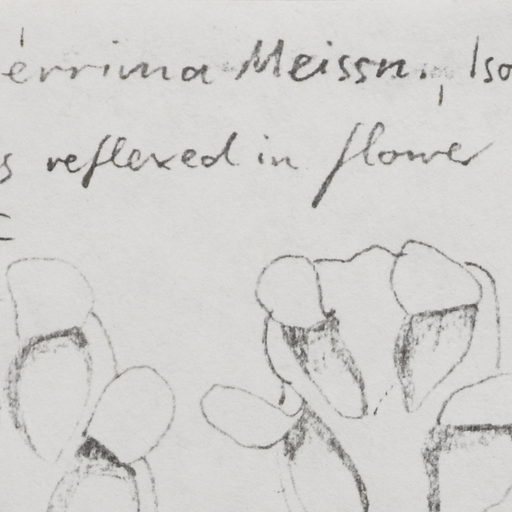 érrima Meissn., Iso
s reflexed in flower